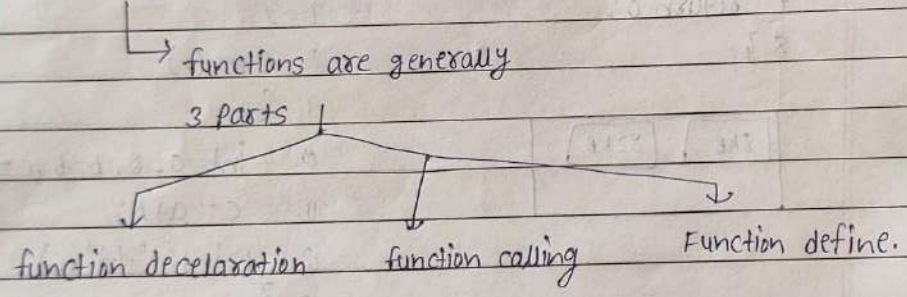 functions are generally
3 parts
function decelaration function calling Function define.